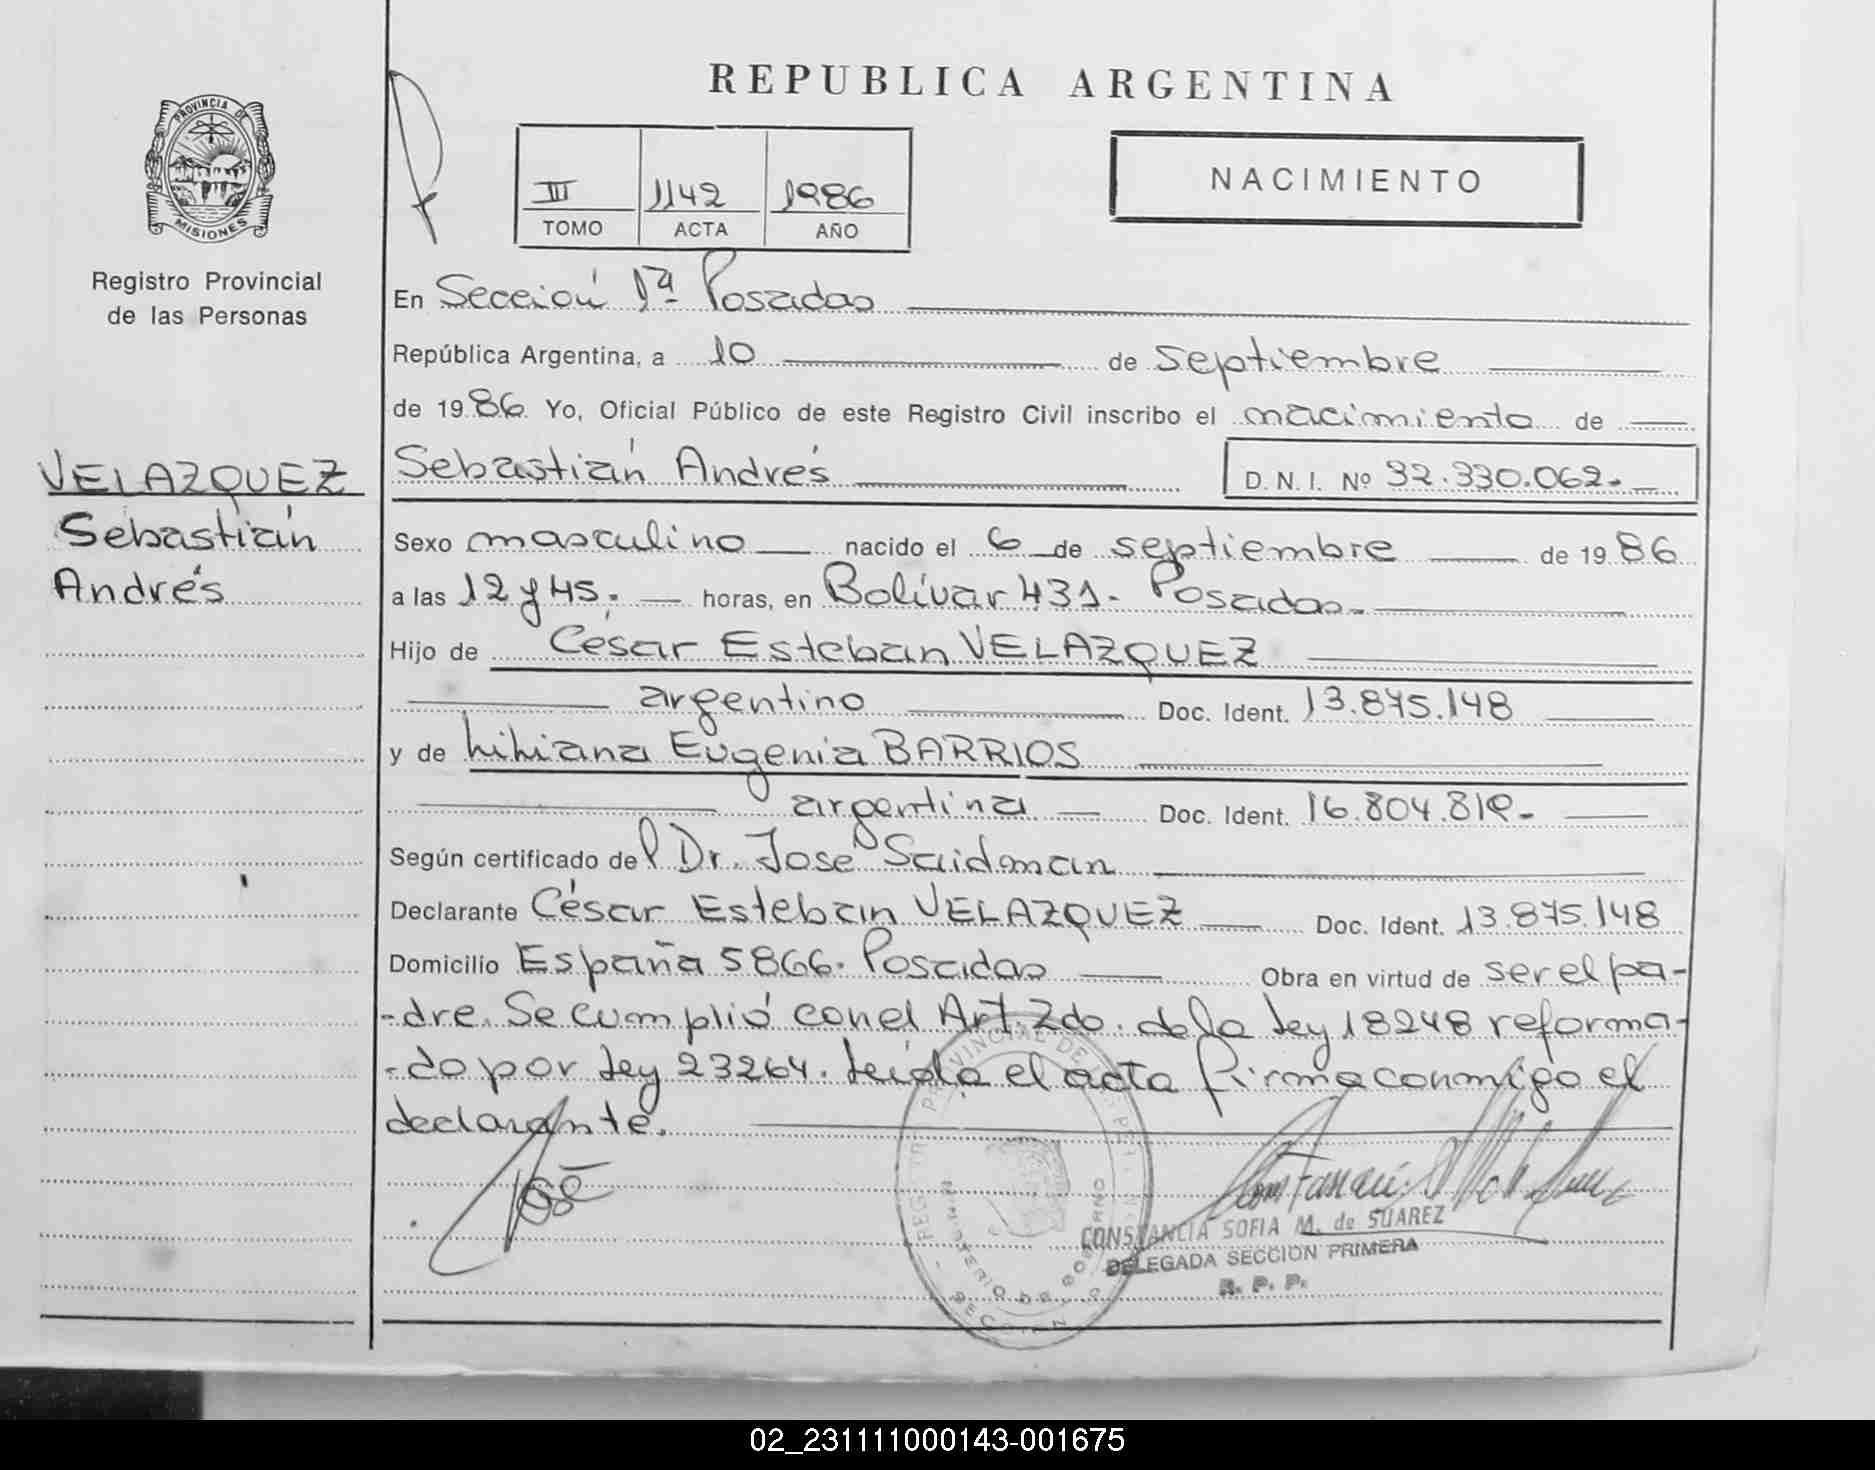 REPUBLICA ARGENTINA
PROVINCIA DE
MISIONES
Registro Provincial
de las Personas
III 1142 1986
TOMO ACTA AÑO
NACIMIENTO
En Sección 1ª Posadas
República Argentina, a 10 de septiembre
de 1986. Yo, Oficial Público de este Registro Civil inscribo el nacimiento de
VELAZQUEZ
Sebastián
Andrés
Sebastián Andrés D. N. I. Nº 32.330.062.
Sexo masculino nacido el 6 de septiembre de 1986
a las 12 y 45. horas, en Bolívar 431. Posadas.
Hijo de César Esteban VELAZQUEZ
argentino Doc. Ident. 13.875.148
y de Liliana Eugenia BARRIOS
argentina Doc. Ident. 16.804.819.
Según certificado del Dr. José Saidman
Declarante César Esteban VELAZQUEZ Doc. Ident. 13.875.148
Domicilio España 5866. Posadas Obra en virtud de ser el pa-
-dre. Se cumplió con el Art. 2do. de la Ley 18248 reforma-
-do por Ley 23264. Leída el acta firma conmigo el
declarante.
CONSTANCIA SOFIA M. de SUAREZ
DELEGADA SECCION PRIMERA
R. P. P.
02_231111000143-001675